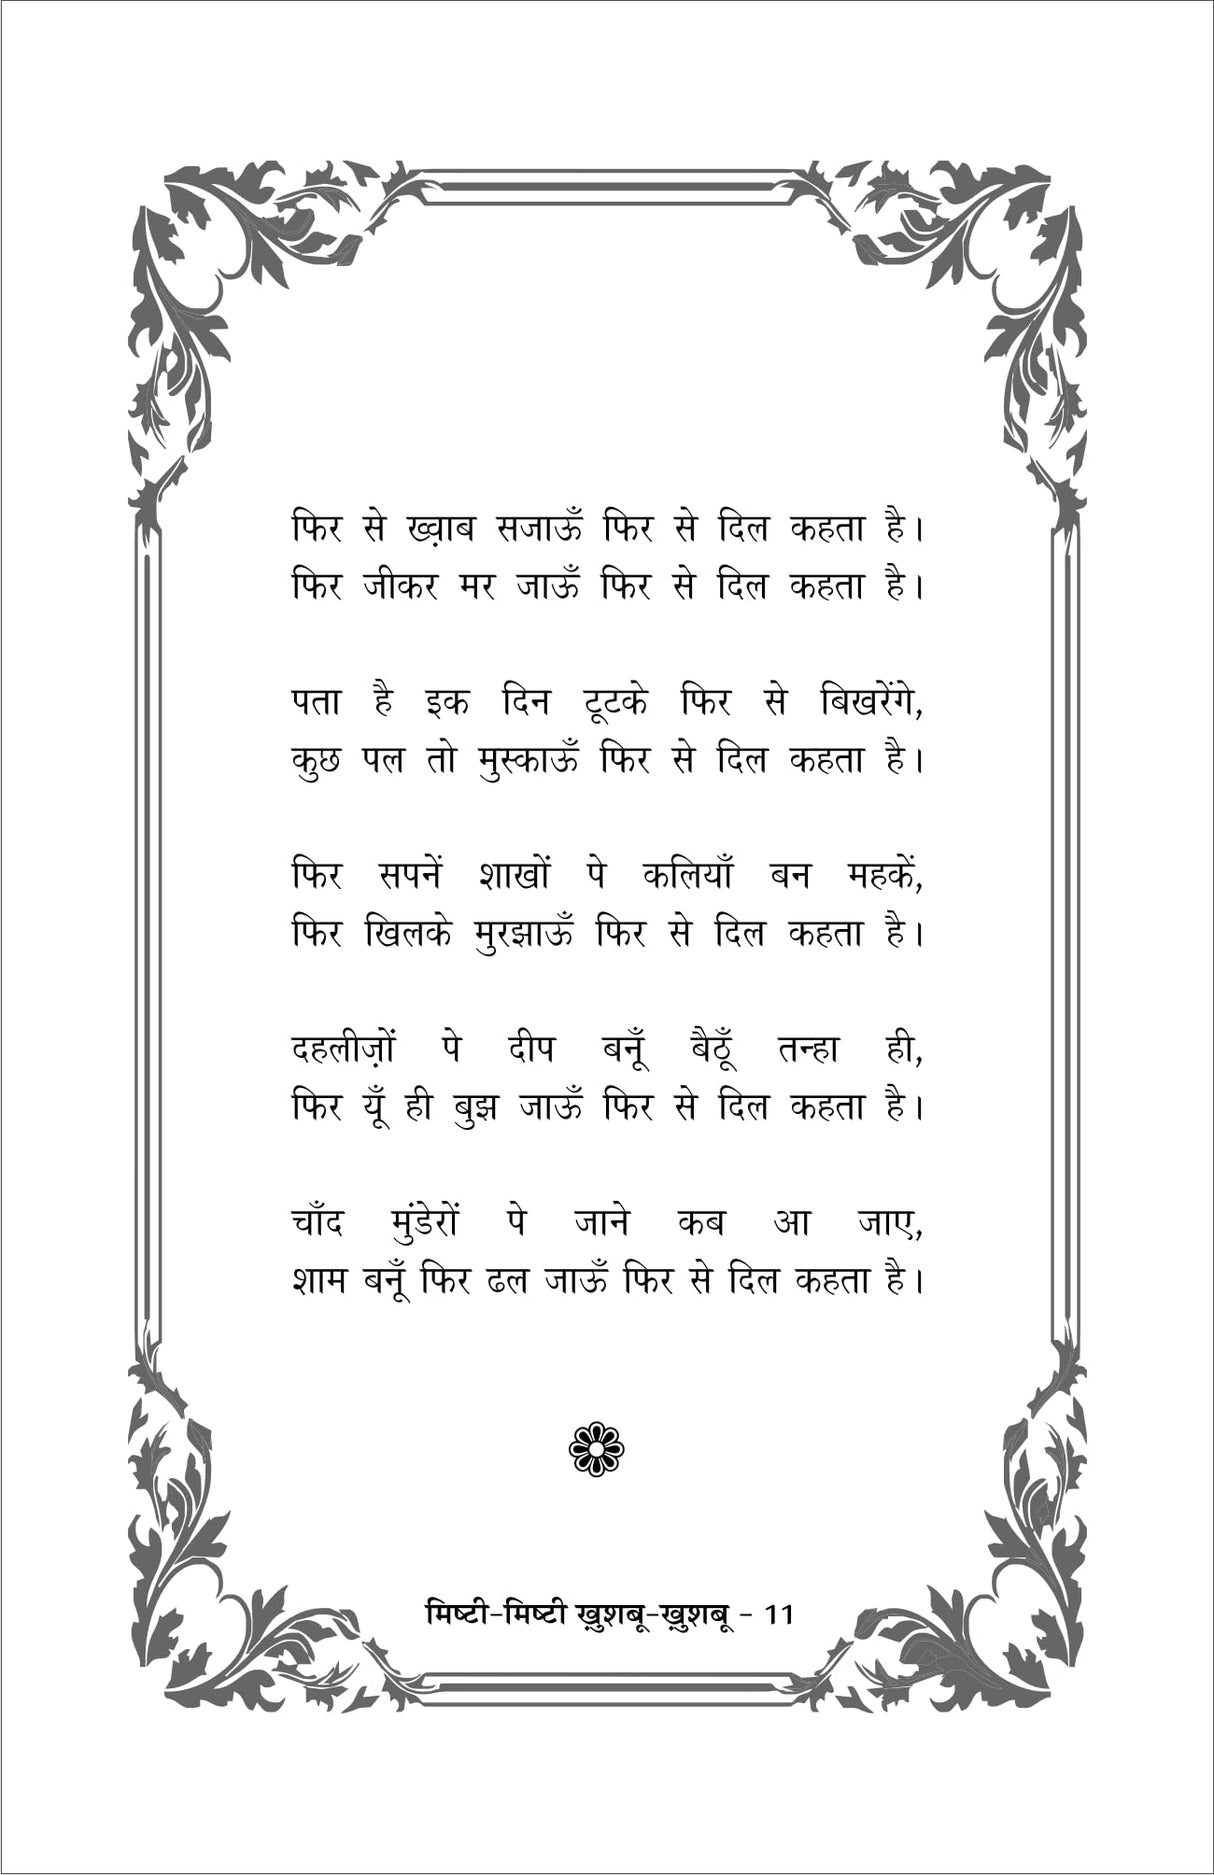 फिर से ख्व़ाब सजाऊँ फिर से दिल कहता है।
फिर जीकर मर जाऊँ फिर से दिल कहता है।
पता है इक दिन टूटके फिर से बिखरेंगे,
कुछ पल तो मुस्काऊँ फिर से दिल कहता है।
फिर सपनें शाखों पे कलियाँ बन महकें,
फिर खिलके मुरझाऊँ फिर से दिल कहता है।
दहलीज़ों पे दीप बनूँ बैठूँ तन्हा ही,
फिर यूँ ही बुझ जाऊँ फिर से दिल कहता है।
चाँद मुंडेरों पे जाने कब आ जाए,
शाम बनूँ फिर ढल जाऊँ फिर से दिल कहता है।
मिष्टी-मिष्टी ख़ुशबू-ख़ुशबू - 11